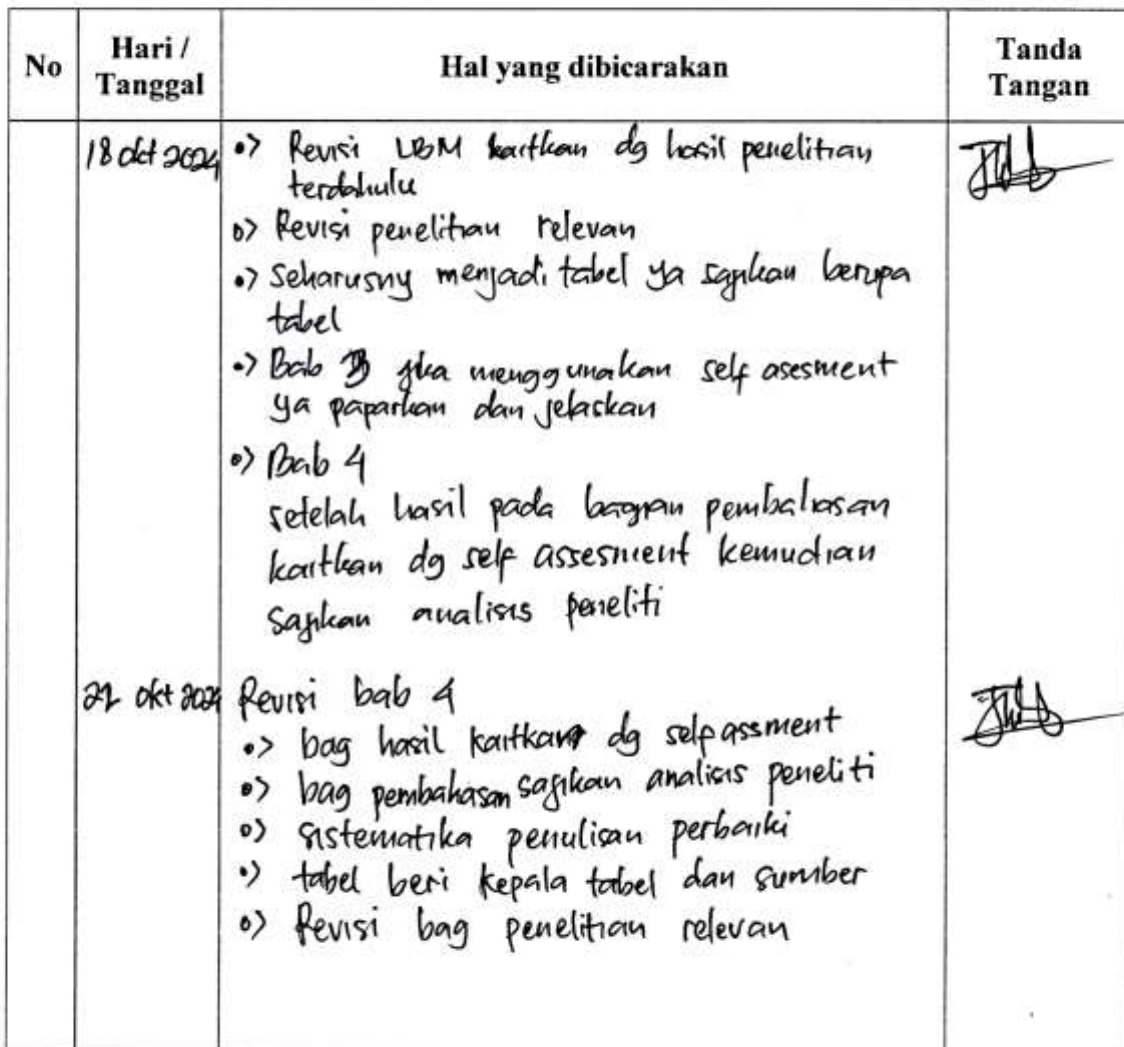 No
Hari /
Tanggal
Hal yang dibicarakan
Tanda
Tangan
18 okt 2024
Revisi LBM kaitkan dg hasil penelitian
terdahulu
Revisi penelitian relevan
Seharusny menjadi tabel ya sajikan berupa
tabel
Bab 3 jika menggunakan self asesment
ya paparkan dan jelaskan
Bab 4
setelah hasil pada bagian pembahasan
kaitkan dg self assesment kemudian
Sajikan analisis peneliti
okt 2024
Revisi bab 4
bag hasil kaitkan dg self assment
bag pembahasan sajikan analisis peneliti
sistematika penulisan perbaiki
tabel beri kepala tabel dan sumber
Revisi bag penelitian relevan